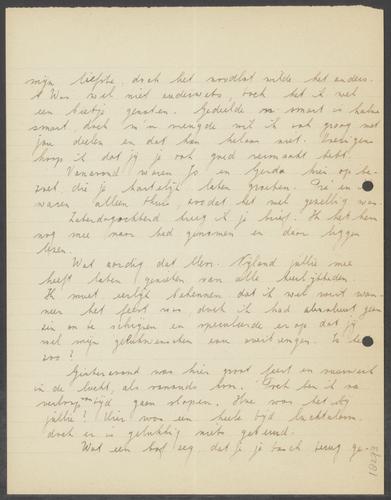 mijn liefste, doch het noodlot wilde het anders.
't Was wel niet anderwets, toch het ik wel
een beetje genoten. Gedeelde smart is halve
smart, doch in 'n vreugde wil ik ook graag met
jou deelen en dat kan helaas niet. Overigens
hoop ik dat jij je ook goed vermaakt hebt.
Vanavond waren Jo en Gerda hier op be-
zoek, die je hartelijk laten groeten. en
waren alleen thuis, zoodat het wel gezellig was.
Zaterdagochtend kreeg ik je brief. Ik het hem
nog mee naar bed genomen en daar liggen
lezen.
Wat aardig dat Mevr. Nyland jullie mee
heeft laten genieten van alle heerlijkheden.
Ik moet eerlijk bekennen dat ik wel wist wan-
neer het feest was, doch ik had absoluut geen
zin om te schrijven en speculeerde er op dat jij
wel mijn gelukwenschen zou overbrengen. Is dat
zoo?
Gisteravond was hier groot feest en vuurwerk
in de lucht, als vanouds hoor. Toch ben ik na
tijd gaan slapen. Hoe was het bij
jullie? Hier was een heele tijd luchtalarm,
doch er is gelukkig niets gebeurd.
Wat een bof zeg, dat je je tasch terug ge-
18293